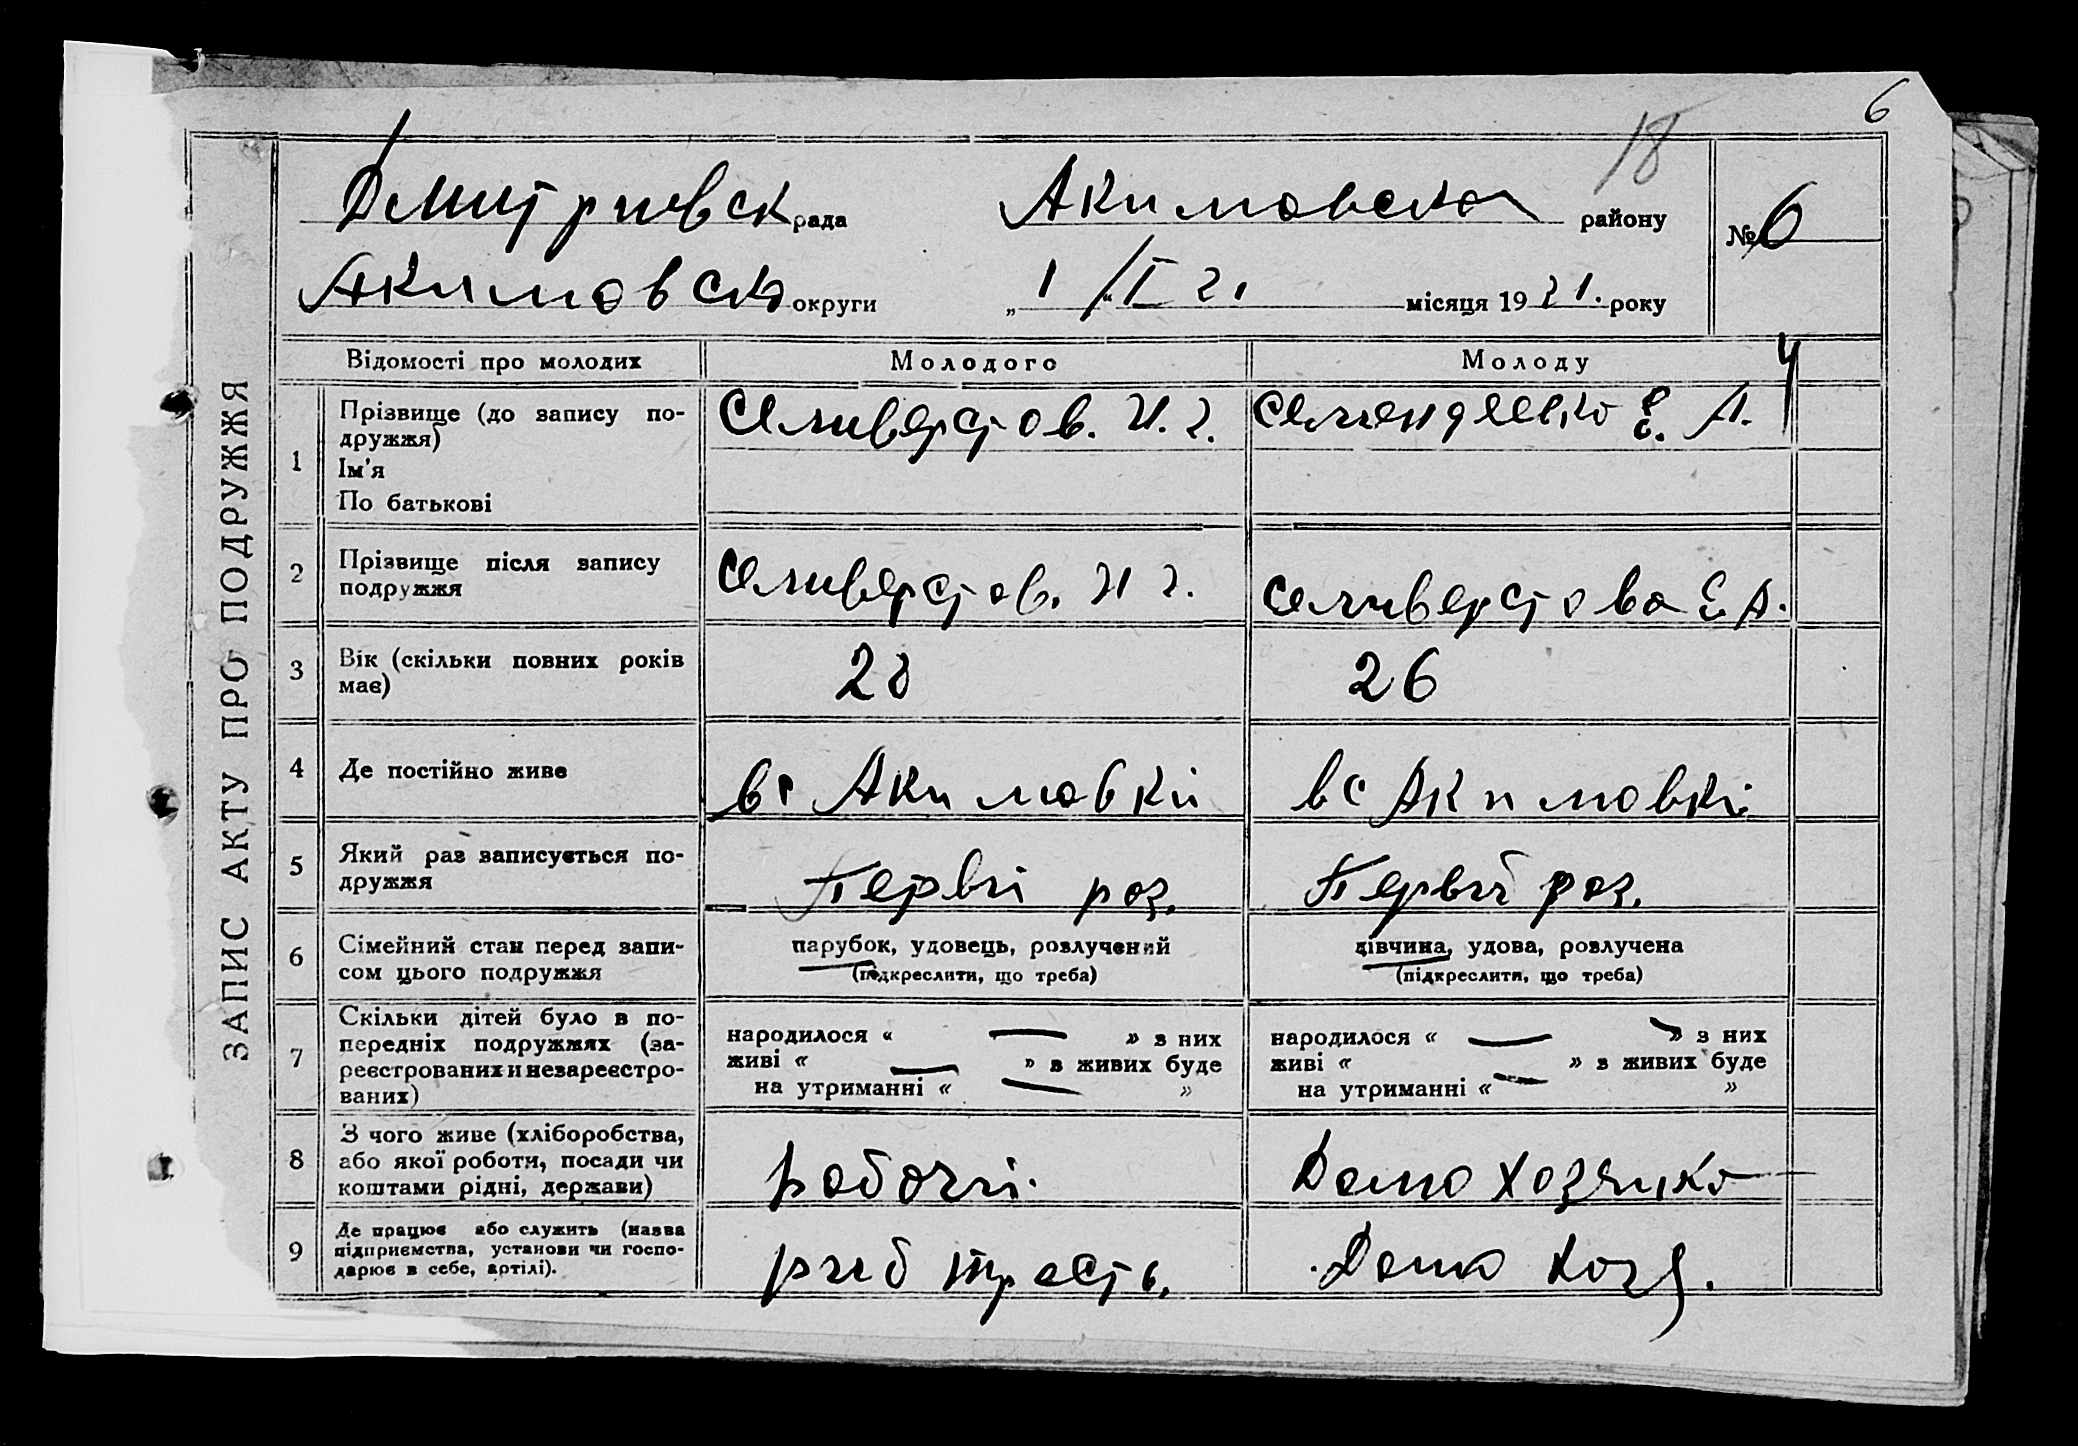 6
18
Дмитриевск рада Акимовского району
№ 6
Акимовск округи „ 1 “ I 21 місяця 1921. року
ЗАПИС АКТУ ПРО ПОДРУЖЖЯ
Відомості про молодих Молодого Молоду
1 Прізвище (до запису по-
дружжя)
Ім'я
По батькові
Селиверстов. И. г. Е. А.
2 Прізвище після запису
подружжя
Селиверстов. И г. Селиверстова Е А.
3 Вік (скільки повних років
має)
28 26
4 Де постійно живе вс Акимовки вс Акимовкі
5 Який раз записується по-
дружжя
Перві раз. Первій раз.
6 Сімейний стан перед запи-
сом цього подружжя
парубок, удовець, розлучений
(підкреслити, що треба)
дівчина, удова, розлучена
(підкреслити, що треба)
7 Скільки дітей було в по-
передніх подружжях (за-
реєстрованих и незареєстро-
ваних)
народилося « — » з них
живі « — » в живих буде
на утриманні « — »
народилося « — » з них
живі « » в живих буде
на утриманні « — »
8 З чого живе (хліборобства,
або якої роботи, посади чи
коштами рідні, держави)
рабочі. Домо хозяйко
9 Де працює або служить (назва
підприємства, установи чи госпо-
дарює в себе, артілі).
риб трест. Домо хозя.